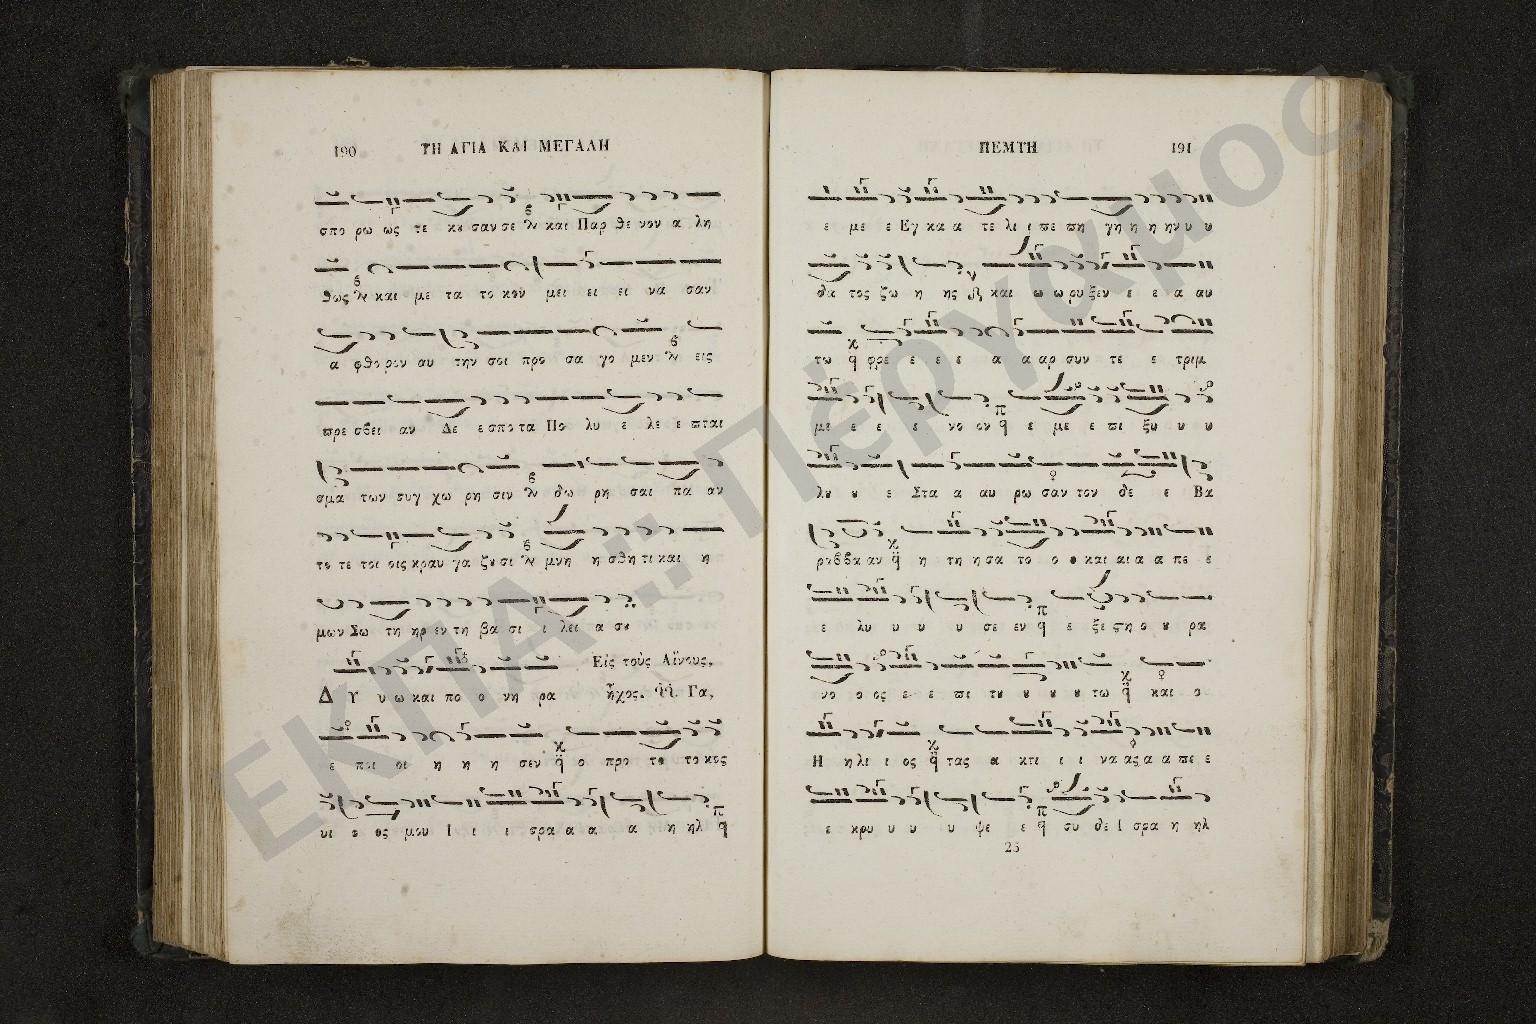 190 ΤΗ ΑΓΙΑ ΚΑΙ ΜΕΓΑΛΗ
σπο ρω ως τε κȣ σαν σε και Παρ θε νον α λη
θως και με τα το κον μει ει ει να σαν
α φθο ρον αυ την σοι προ σα γο μεν εις
πρε σβει αν Δε ε σπο τα Πο λυ ε λε ε πται
σμα των συγ χω ρη σιν δω ρη σαι πα αν
το τε τοι οις κραυ γα ζȣ σι μνη η σθη τι και η
μων Σω τη ηρ εν τη βα σι ι λει α σȣ
Εἰς τοὺς Αἴνους,
Δ Υ υ ω και πο ο νη ρα ἦχος. Γα,
ε ποι οι η η η σεν ο προ το το κος
υι ο ος μου Ι ι ι σρα α α α η ηλ
ΠΕΜΤΗ 191
ε με ε Εγ κα α τε λι ι πε πη γη η η ην υ υ
δα τος ζω η ης και ω ω ρυ ξεν ε ε α αυ
τω φρε ε ε ε α α αρ συν τε ε τριμ
με ε ε ε νο ον ε με ε πι ξυ υ υ
λυ υ ε Στα α αυ ρω σαν τον δε ε Βα
ραββα αν η τη η σα το ο ο και αι α α πε ε
ε λυ υ υ υ σε εν ε ξε ϛη ο υ ρα
νο ο ος ε ε πι τȣ ȣ ȣ ȣ τω και ο
Η ηλι ι ος τας α κτι ι ι να ας α α πε ε
ε κρυ υ υ υ ψε ε συ δε Ι σρα η ηλ
25
ΕΚΠΑ :: Πέργαμος